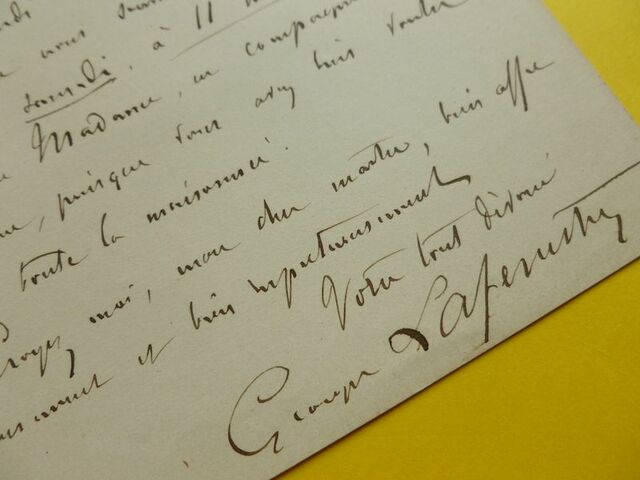 samedi, à 11
Madame, en compagnie
puisque vous avez bien voulu
toute la maisonnée.
Croyez moi, mon cher maître, bien affec
et bien respectueusement
Votre tout dévoué
Georges Lafenestre